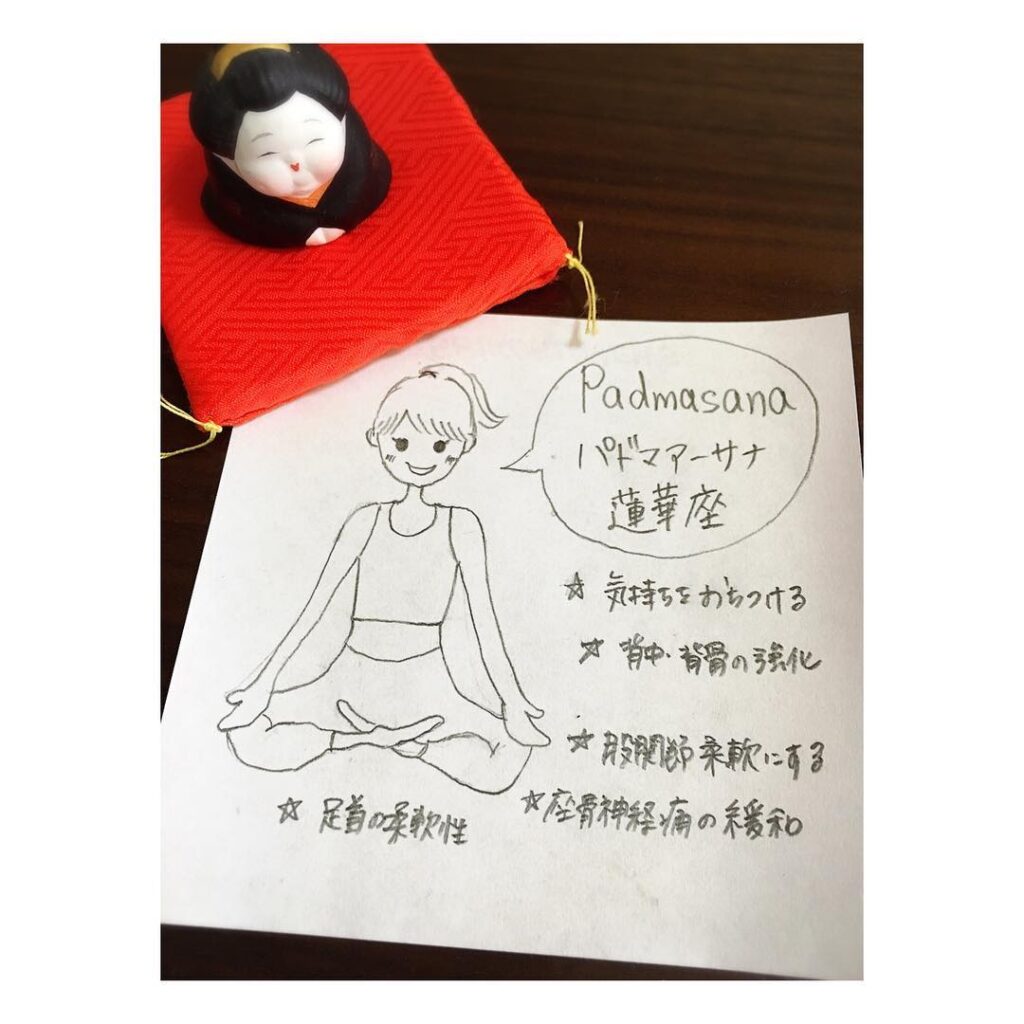 Padmasana
パドマアーサナ
蓮華座
☆ 気持ちをおちつける
☆ 背中・背骨の強化
☆ 股関節柔軟にする
☆ 座骨神経痛の緩和
☆ 足首の柔軟性